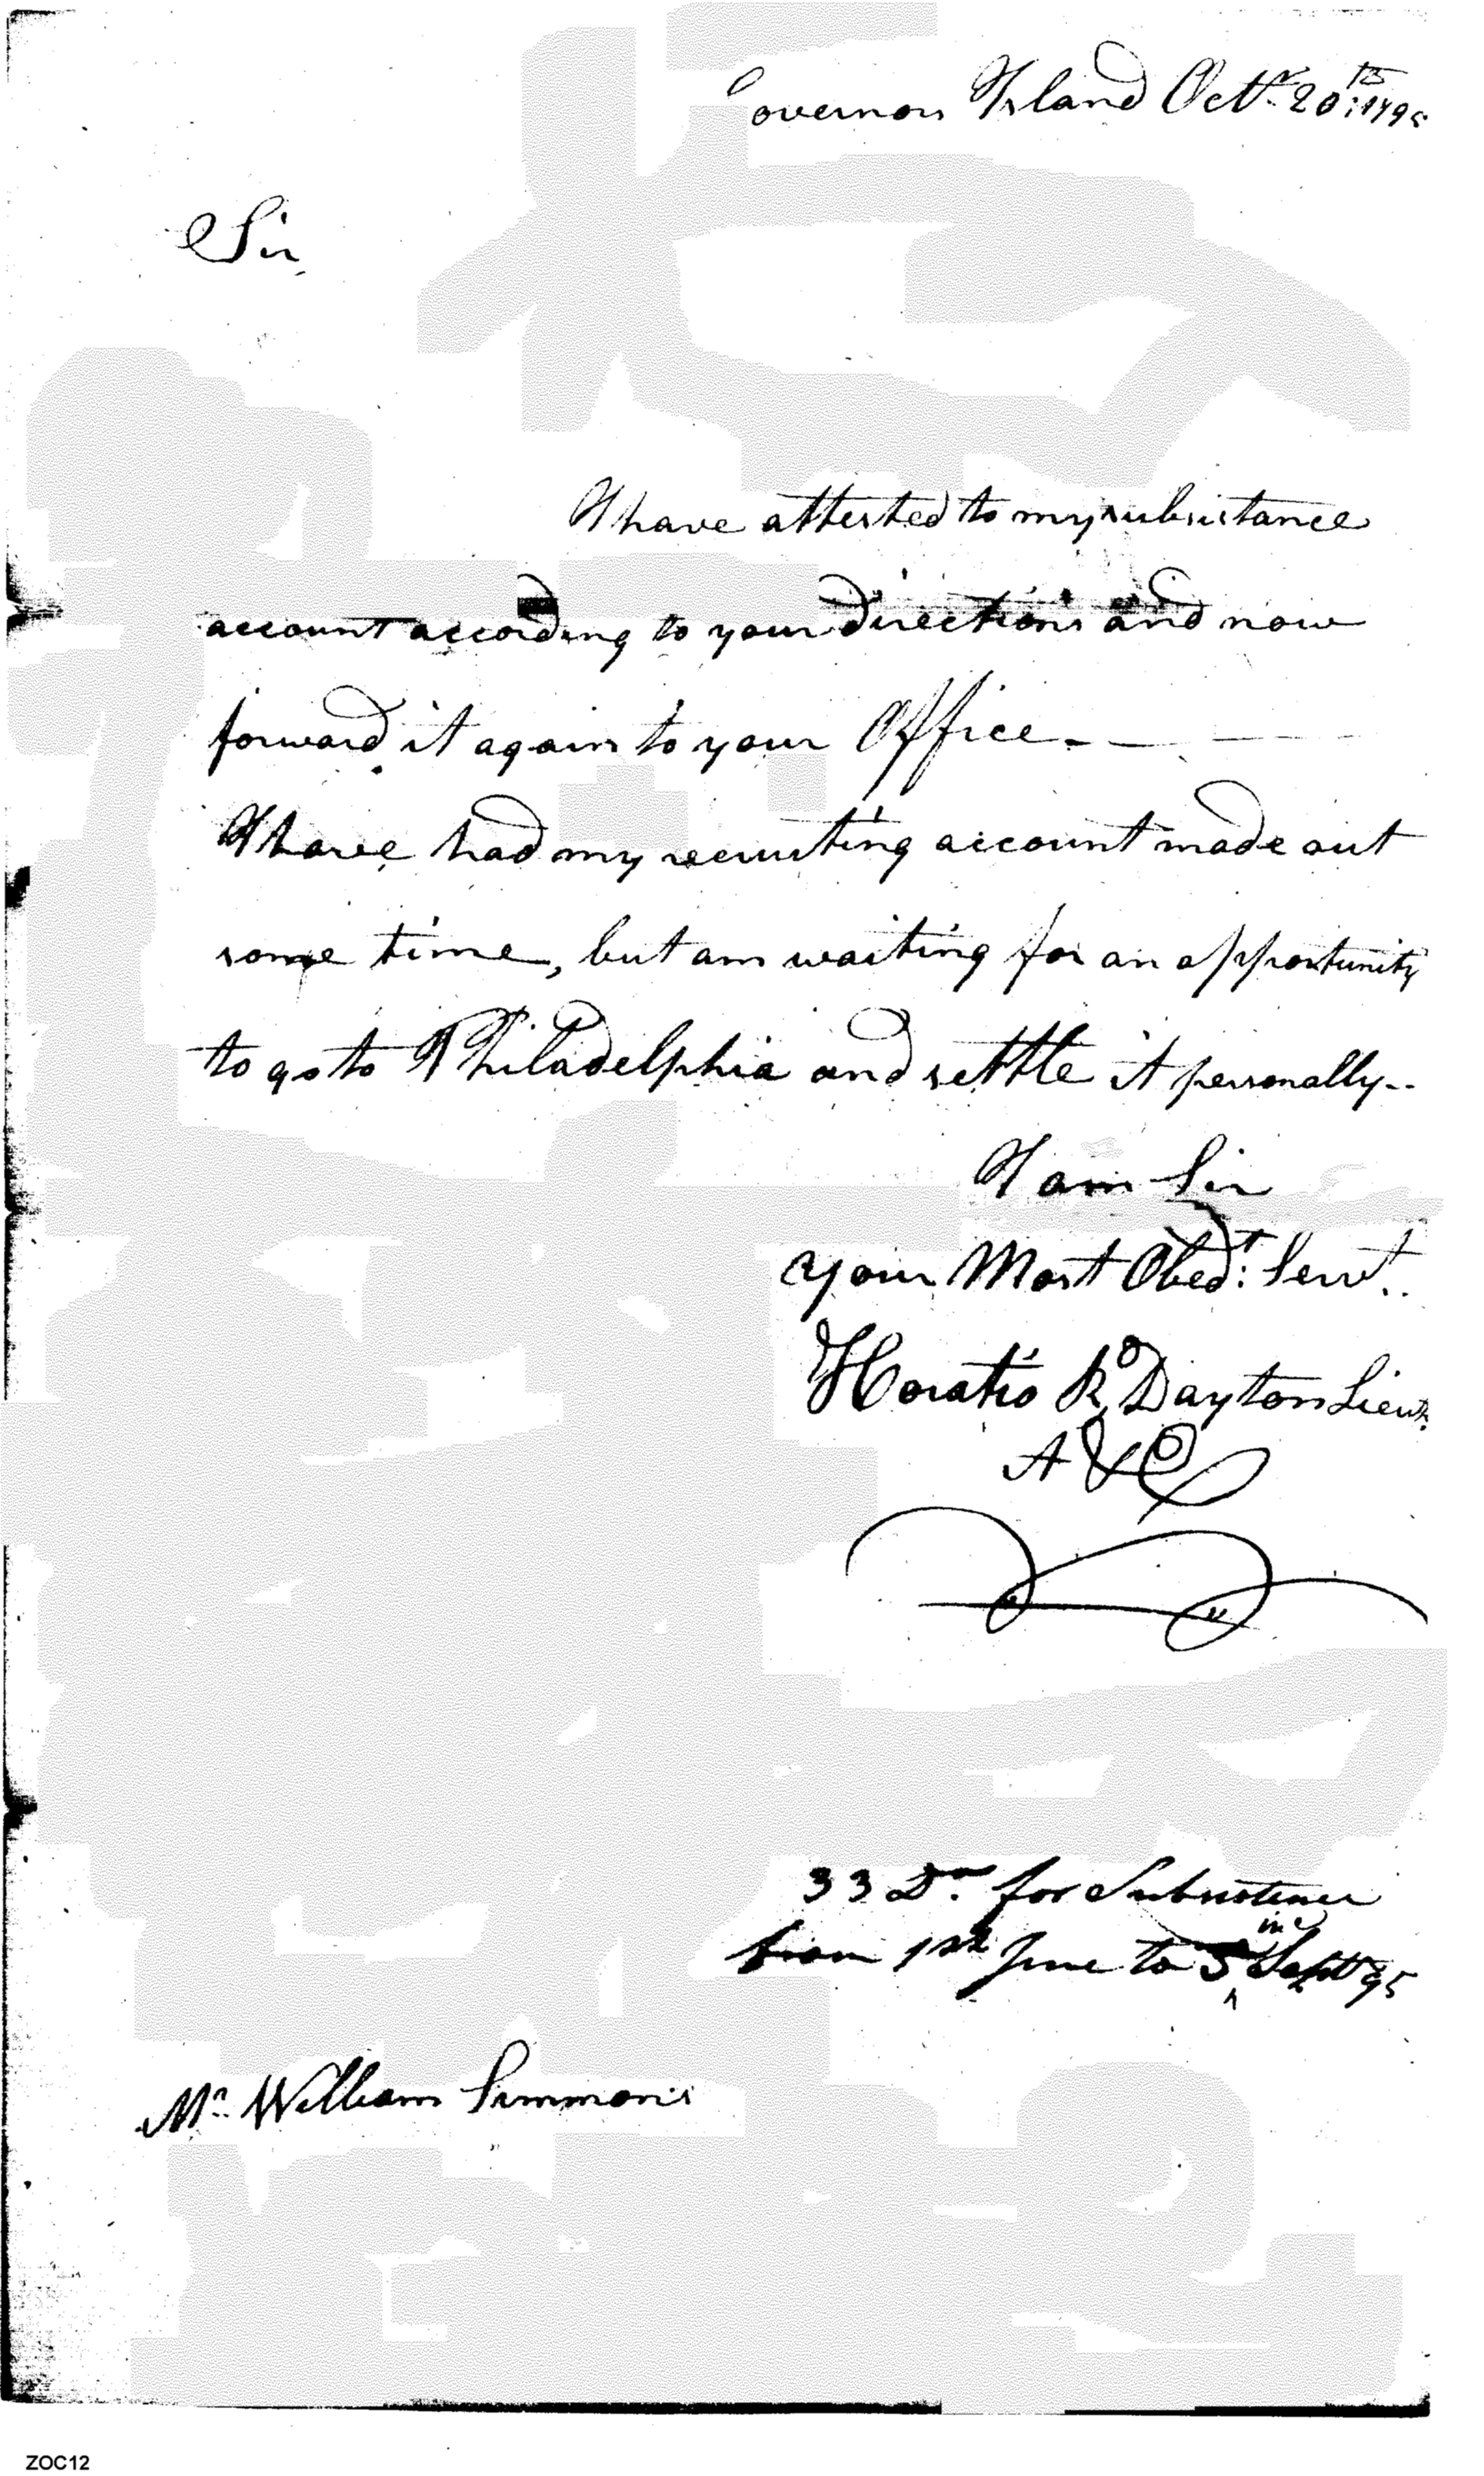 Governors Island Octr. 20th: 1795
Sir
I have attested to my subsistance
account according to your directions and now
forward it again to your Office. — —
I have had my recruiting account made out
some time, but am waiting for an opportunity
to go to Philadelphia and settle it personally--
I am Sir
your Most Obedt: Servt..
Horatio R Dayton Lieut.
A & E
33 Drs. for Subsistence
from 1st June to 3 inc Sept 95
Mr. William Simmons
ZOC12